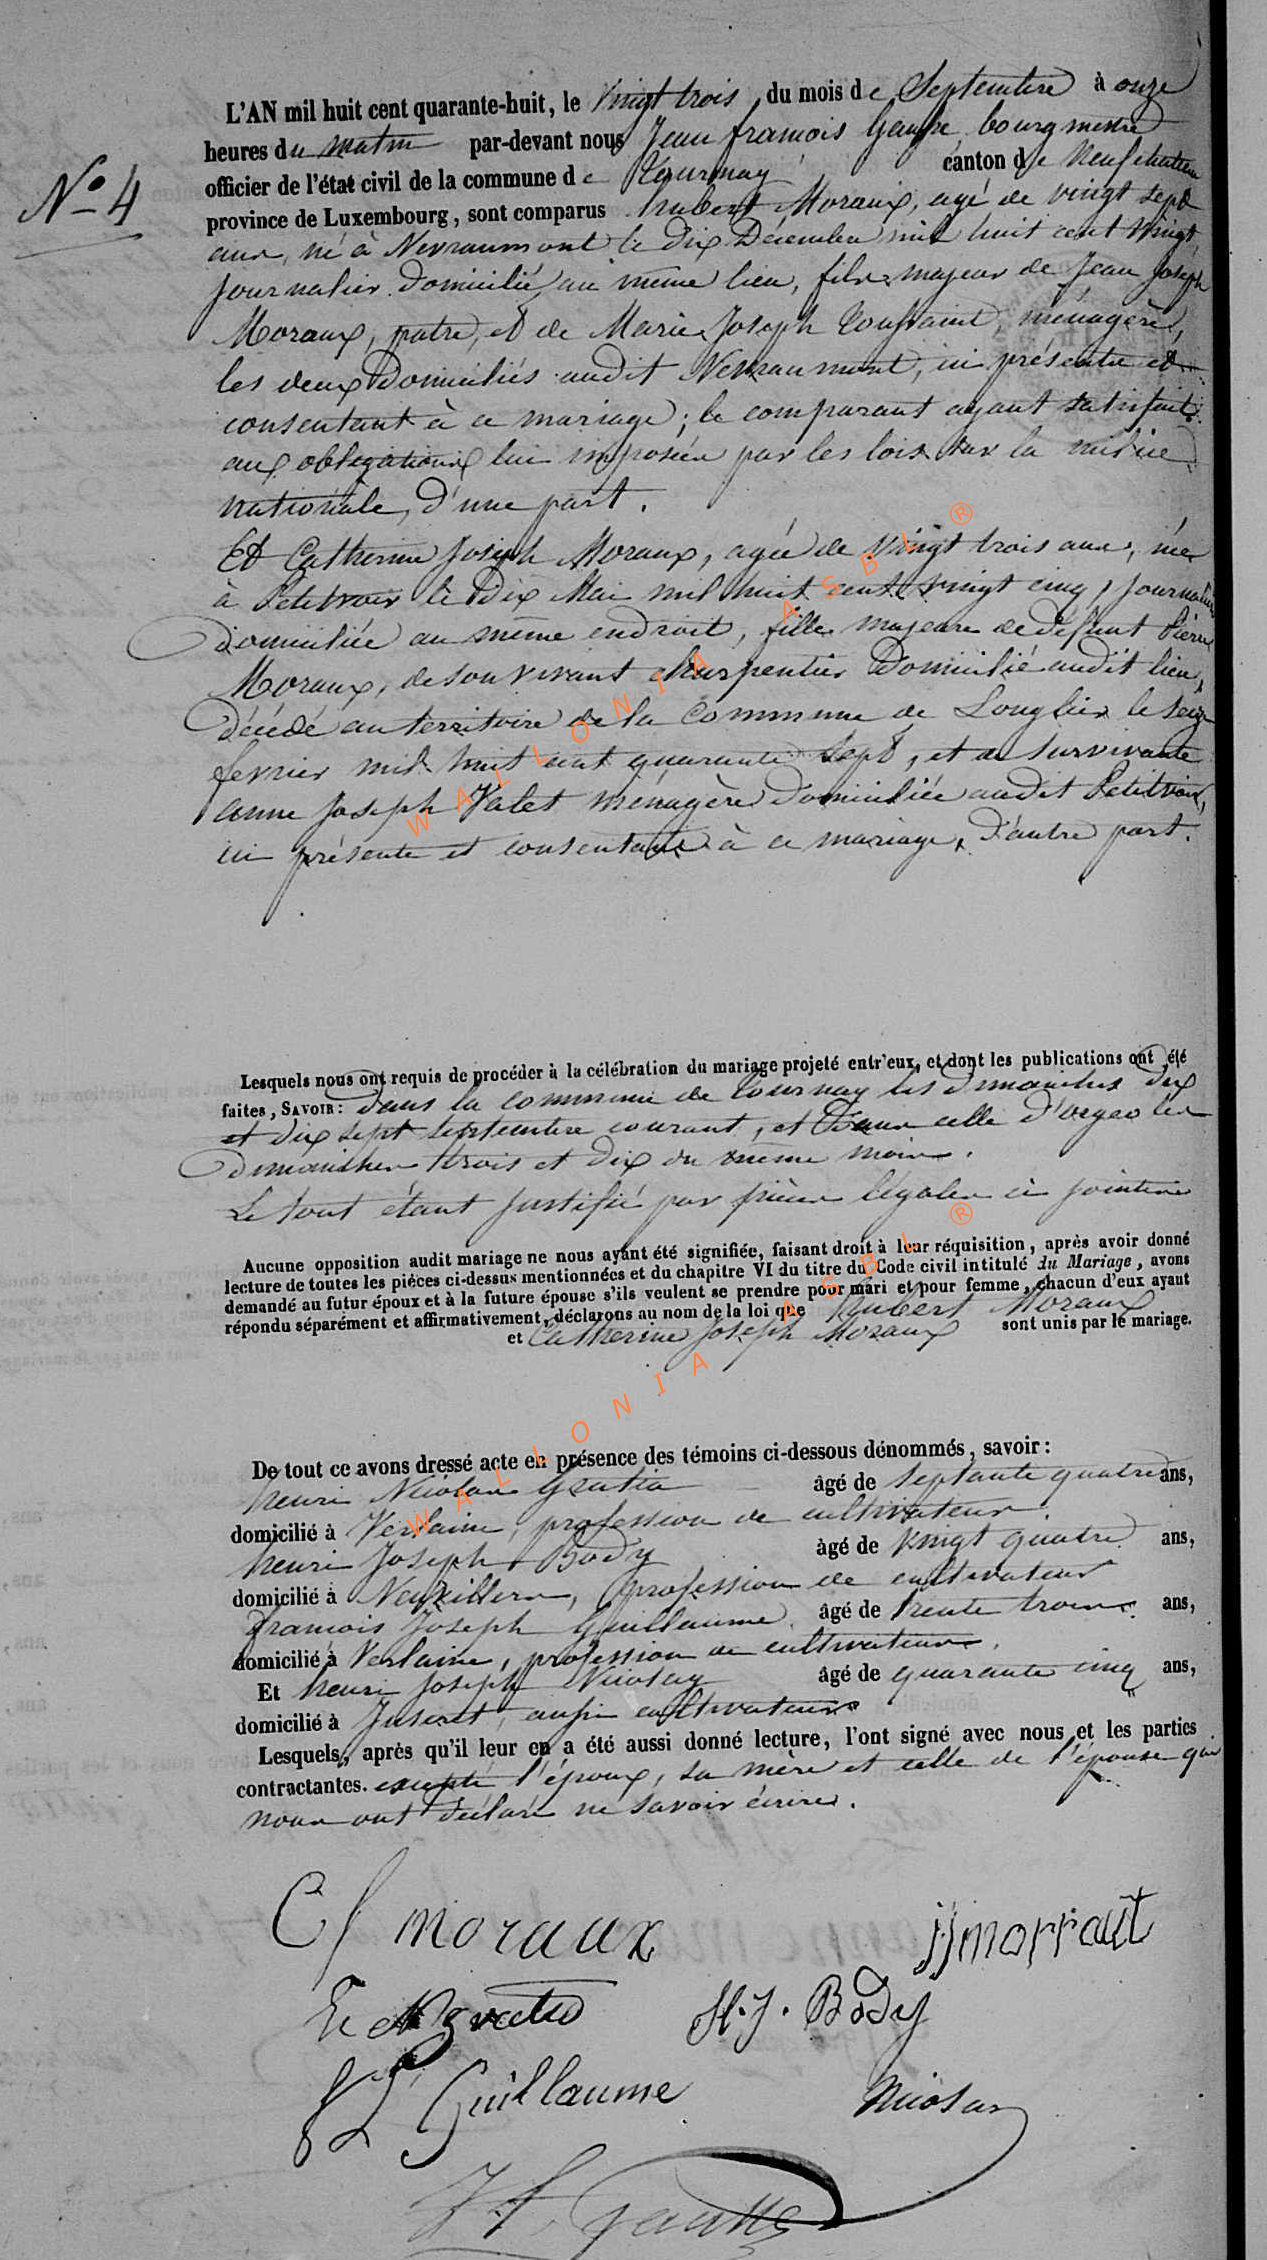 N° 4
L'AN mil huit cent quarante-huit, le vingt trois du mois de Septembre à onze
heures du matin par-devant nous Jean françois bourgmestre
officier de l'état civil de la commune de Tournay canton de Neufchateau
province de Luxembourg, sont comparus hubert Moraux, agé de vingt sept
ans, né à Nevraumont le dix Décembre mil huit cent vingt,
journalier domicilié au même lieu, fils majeur de Jean Joseph
Moraux, patre, et de Marie Joseph Toussaint, ménagère,
les deux Domiciliés audit Nevraumont, ici présents et
consentant à ce mariage; le comparant ayant satisfait
aux obligations lui imposées par les lois sur la milice
nationale, d'une part.
Et Catherine Joseph Moraux, agée de vingt trois ans, née
à Petitvoir le Dix Mai mil huit cent vingt cinq, journalière
domiciliée au même endroit, fille majeure de défunt Pierre
Moraux, de son vivant charpentier Domicilié audit lieu,
décédé au territoire de la commune de Longlier le seize
fevrier mil huit cent quarante sept, et de survivante
anne Joseph Valet ménagère Domiciliée audit Petitvoir,
ici présente et consentante à ce mariage, d'autre part.
Lesquels nous ont requis de procéder à la célébration du mariage projeté entr'eux, et dont les publications ont été
faites, SAVOIR: dans la commune de Tournay les dimanches dix
et dix sept septembre courant, et dans celle d'orgeo les
Dimanches trois et dix du même mois.
Le tout étant justifié par pièces légales ci jointes
Aucune opposition audit mariage ne nous ayant été signifiée, faisant droit à leur réquisition, après avoir donné
lecture de toutes les pièces ci-dessus mentionnées et du chapitre VI du titre du Code civil intitulé du Mariage, avons
demandé au futur époux et à la future épouse s'ils veulent se prendre pour mari et pour femme, chacun d'eux ayant
répondu séparément et affirmativement, déclarons au nom de la loi que hubert Moraux
et Catherine Joseph Moraux sont unis par le mariage.
De tout ce avons dressé acte en présence des témoins ci-dessous dénommés, savoir:
henri Nicolas Gratia âgé de septante quatre ans,
domicilié à Verlaine, profession de cultivateur.
henri Joseph Body âgé de vingt quatre ans,
domicilié à Neuvillers, profession de cultivateur
françois Joseph Guillaume âgé de trente trois ans,
domicilié à Verlaine, profession de cultivateur.
Et henri Joseph Nicolay âgé de quarante cinq ans,
domicilié à Juseret, aussi cultivateur
Lesquels, après qu'il leur en a été aussi donné lecture, l'ont signé avec nous et les parties
contractantes. excepté l'époux, sa mère et celle de l'épouse qui
nous ont déclaré ne savoir écrire.
CJ moraux jjmorraut
h N gratia H. J. Body
Guillaume Nicolay
WALLONIA ASBL ®
WALLONIA ASBL ®